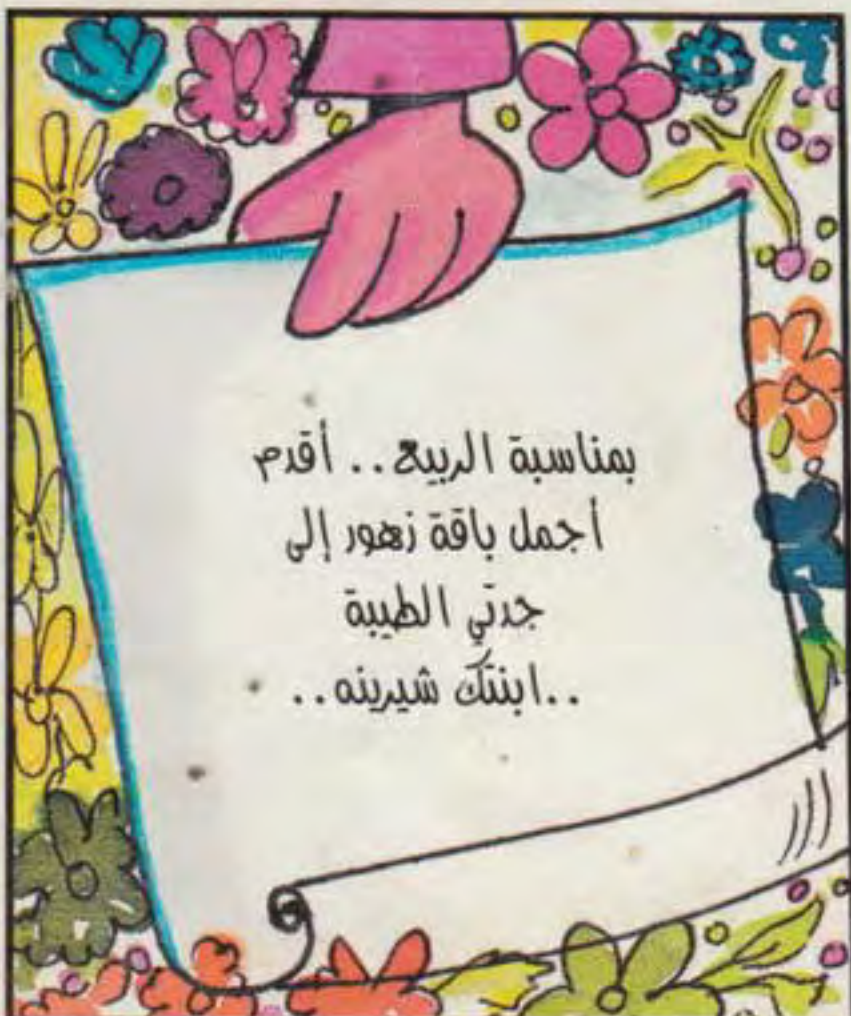 بمناسبة الربيع.. أقدم
أجمل باقة زهور إلى
جدتي الطيبة
..ابنتك شيرينه..